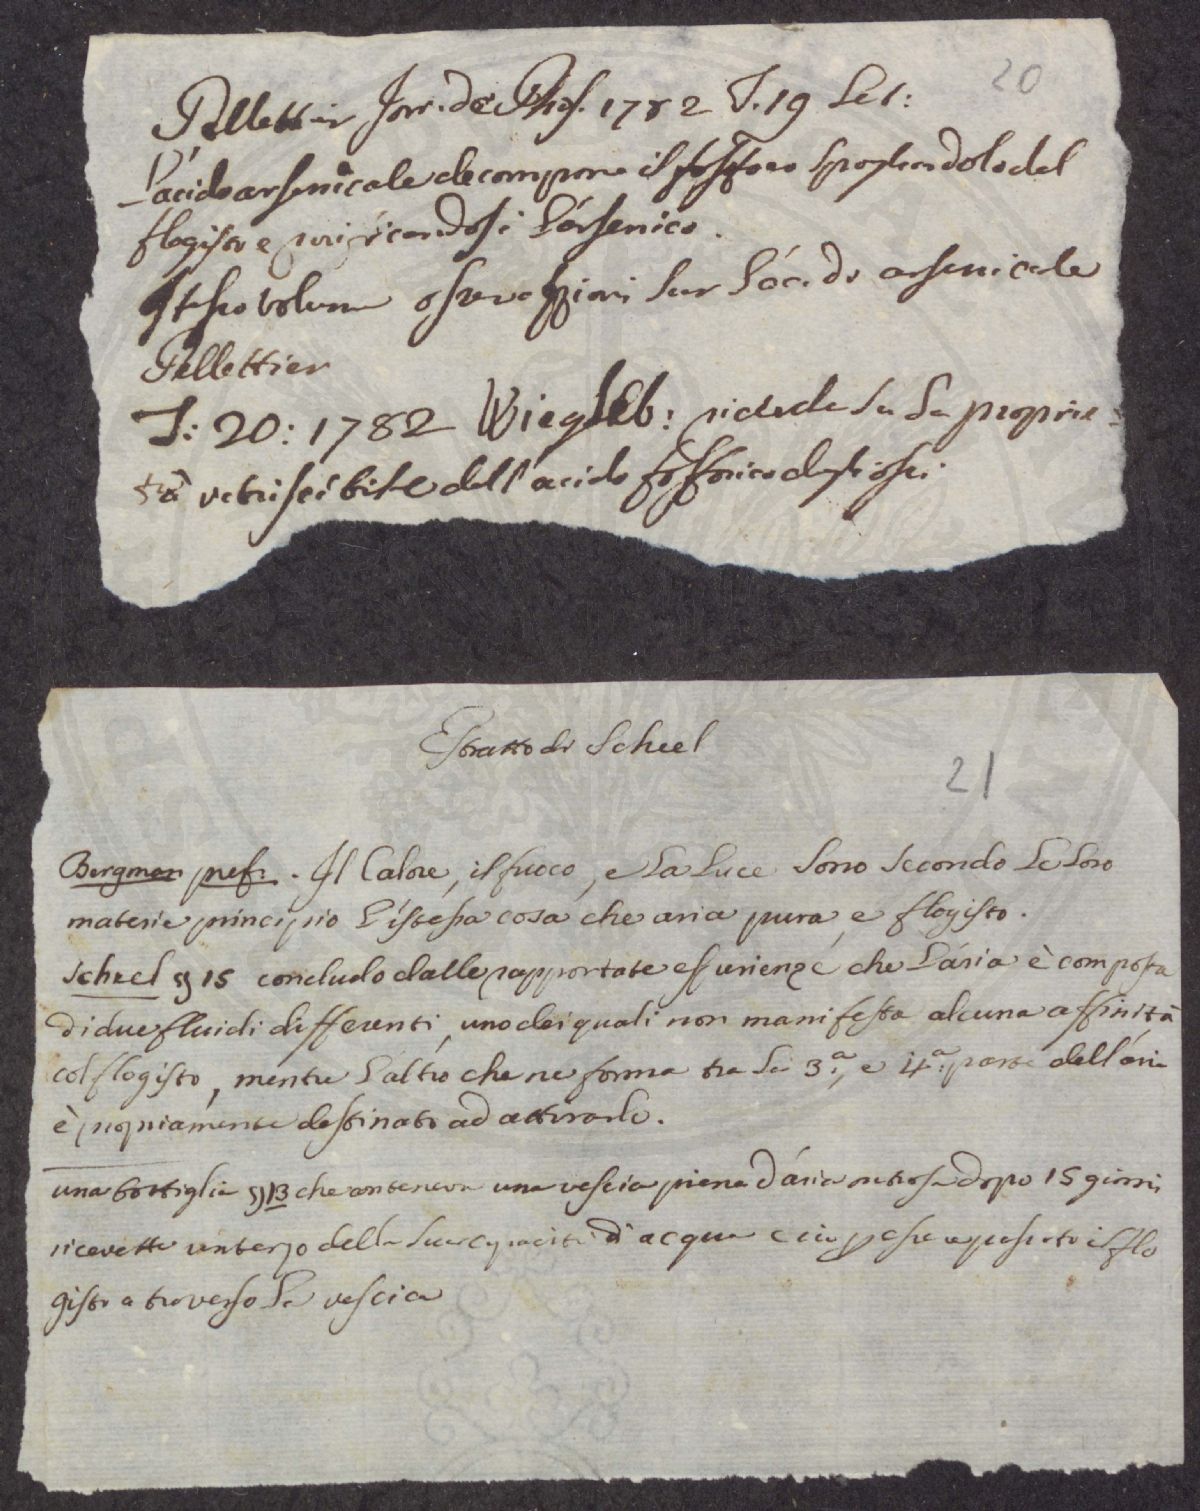 20
Pellettier Jour. de Phis. 1782 T. 19 Set:
L'acido arsenicale decompone il fosforo spogliandolo del
flogisto e purificandosi l'arsenico.
Istesso volume osservazzioni sur l'acido arsenicale
Pellettier
T: 20: 1782 Wiegleb: su la proprie=
tà vetriscibile dell'acido fosforico degli ossi
Estratto di Scheel
21
Bergman pref: . Il Calore, il fuoco, e la Luce sono secondo le loro
materie principio l'istessa cosa che aria pura, e flogisto.
Scheel § 15 concludo dalle rapportate esperienze che l'aria è composta
di due fluidi differenti, uno dei quali non manifesta alcuna affinità
col flogisto, mentre l'altro che ne forma tra la 3.a, e 4.a parte dell'aria
è propriamente destinato ad attirarlo.
una bottiglia § 13 che conteneva una vescia piena d'aria nitrosa dopo 15 giorni
ricevette un terzo della sua capacità di acqua e ciò per esser passato il flo
gisto a traverso la vescica